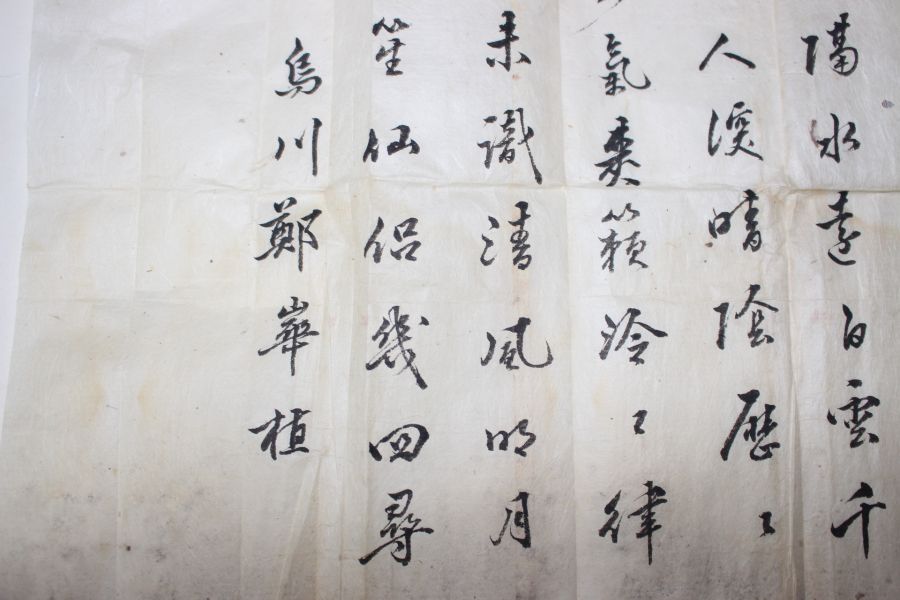 隔水遠白雲千
人渓晴陰歷〻
氣乗籟泠〻律
未識清風明月
笙仙侶幾回尋
烏川鄭崋植